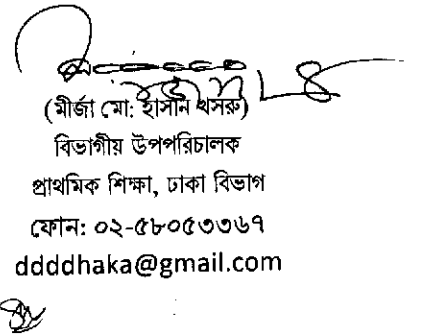 (মীর্জা মো: হাসান খসরু)
বিভাগীয় উপপরিচালক
প্রাথমিক শিক্ষা, ঢাকা বিভাগ
ফোন: ০২-৫৮০৫৩৩৬৭
ddddhaka@gmail.com